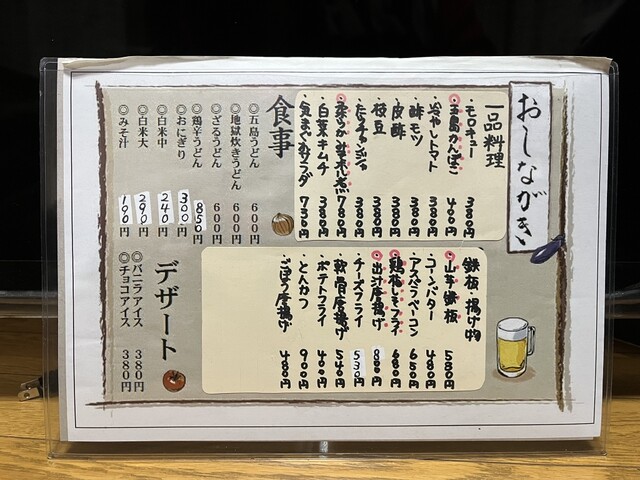 おしながき
一品料理
・モロキュー 380円
◎五島かんぼこ 400円
・冷やしトマト 380円
・酢モツ 380円
・皮酢 380円
・枝豆 380円
・たこチャンジャ 380円
780円
・白菜キムチ 380円
サラダ 730円
食事
◎五島うどん 600円
◎地獄炊きうどん 600円
◎ざるうどん 600円
◎鶏辛うどん 850円
◎おにぎり 300円
◎白米中 240円
◎白米大 290円
◎みそ汁 190円
鉄板・揚げ物
◎山芋鉄板 580円
・コーンバター 480円
・アスパラベーコン 650円
◎鶏梅しそフライ 680円
◎出汁唐揚げ 800円
・チーズフライ 530円
・軟骨唐揚げ 540円
・ポテトフライ 400円
・とんかつ 900円
・ごぼう唐揚げ 480円
デザート
◎バニラアイス 380円
◎チョコアイス 380円